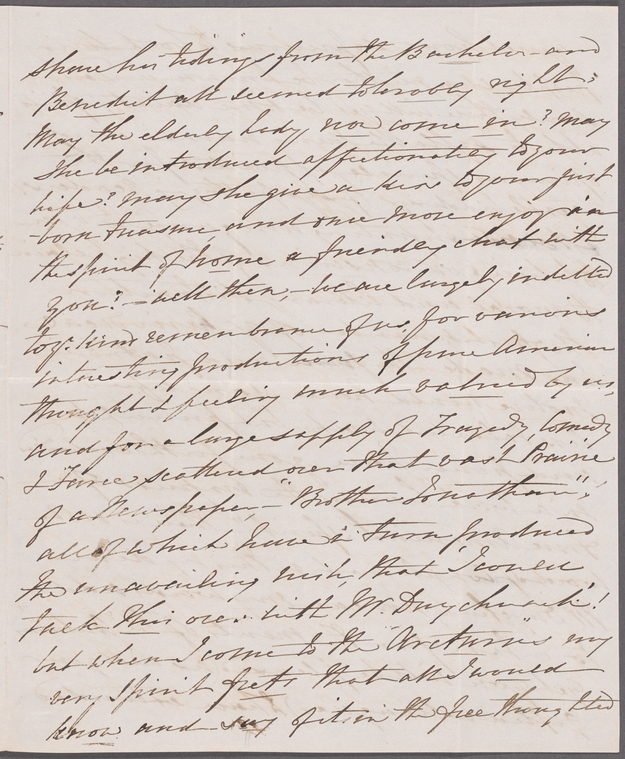 share his tidings from the Bachelor and
Benedict all seemed tolerably right:
May the elderly Lady now come in? May
She be introduced affectionately to your
wife? may she give a kiss to your first
born treasure and once more enjoy in
the spirit of home a friendly chat with
you? - well then, - we are largely indebted
to yr. kind remembrance of us, for various
interesting productions of pure American
thought & feeling much valued by us,
and for a large supply of Tragedy, Comedy
& Farce scattered over that vast Prairie
of a Newspaper, - "Brother Jonathan";
all of which have in turn produced
the unavailing wish, that 'I could
talk this over with Mr. Duyckinck'!
but when I come to the "Arcturus" my
very Spirit frets that all I would
know and say of it in the free thoughted